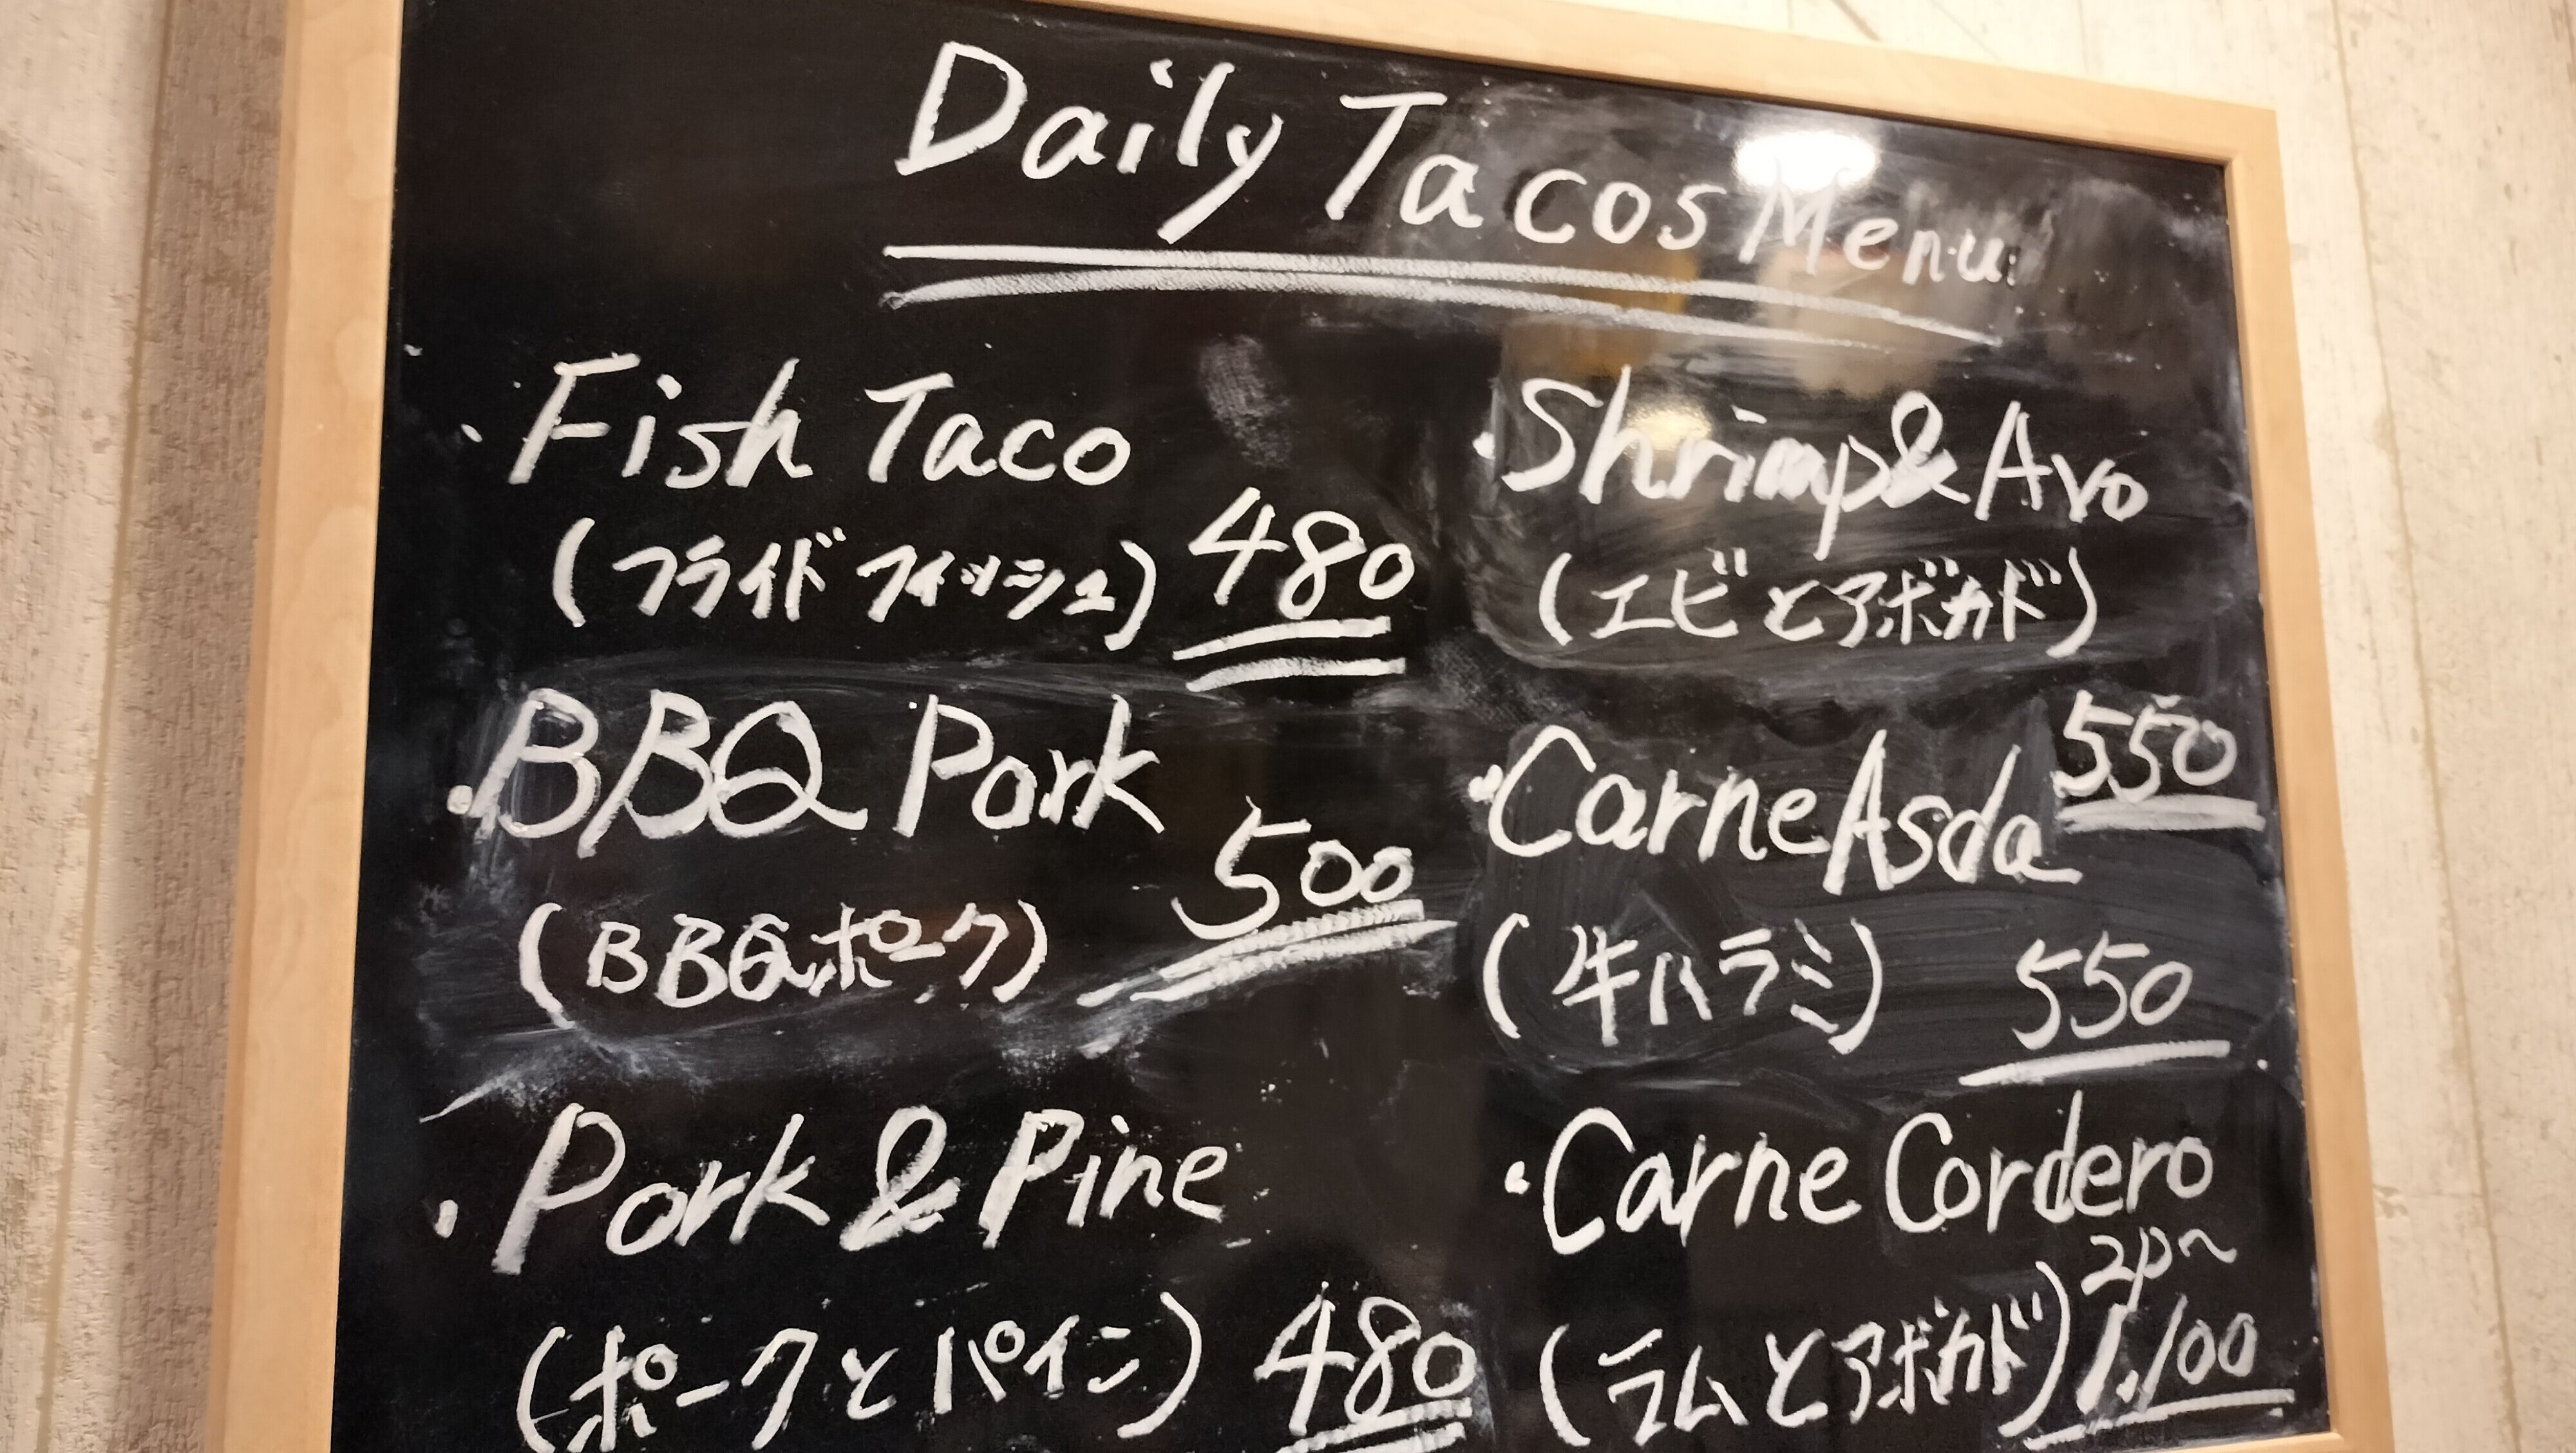 Daily Tacos Menu
・Fish Taco
(フライドフィッシュ) 480
・BBQ Pork
500
(BBQポーク)
・Pork & Pine
(ポークとパイン) 480
・Shrimp & Avo
(エビとアボカド)
550
・Carne Asda
(牛ハラミ) 550
・Carne Cordero
2p~
(ラムとアボカド) 1,100